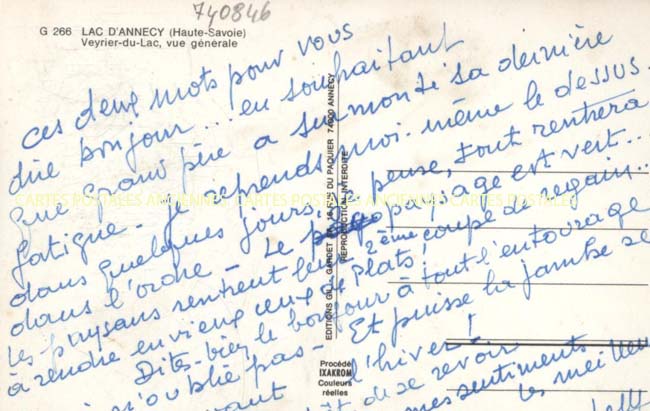 740846
G 266 LAC D'ANNECY (Haute-Savoie)
Veyrier-du-Lac, vue générale
ces deux mots pour vous
dire bonjour... en souhaitant
que grand'père a surmonté sa dernière
fatigue - Je reprends moi-même le dessus.
dans quelques jours, je pense, tout rentrera
dans l'ordre - Le paysage est vert...
les paysans rentrent leur 2ème coupe de regain...
à rendre envieux ceux de Plats!
Dites-bien le bonjour à tout l'entourage
n'oublie pas - Et puisse la jambe se
l'hiver!
de se revoir
mes sentiments
les meilleu
CARTES POSTALES ANCIENNES CARTES POSTALES ANCIENNES CARTES POSTALES
EDITIONS GIL - GARDET - 16 FAG DU PAQUIER 74000 ANNECY
REPRODUCTION INTERDITE
Procédé
IXAKROM
Couleurs
réelles